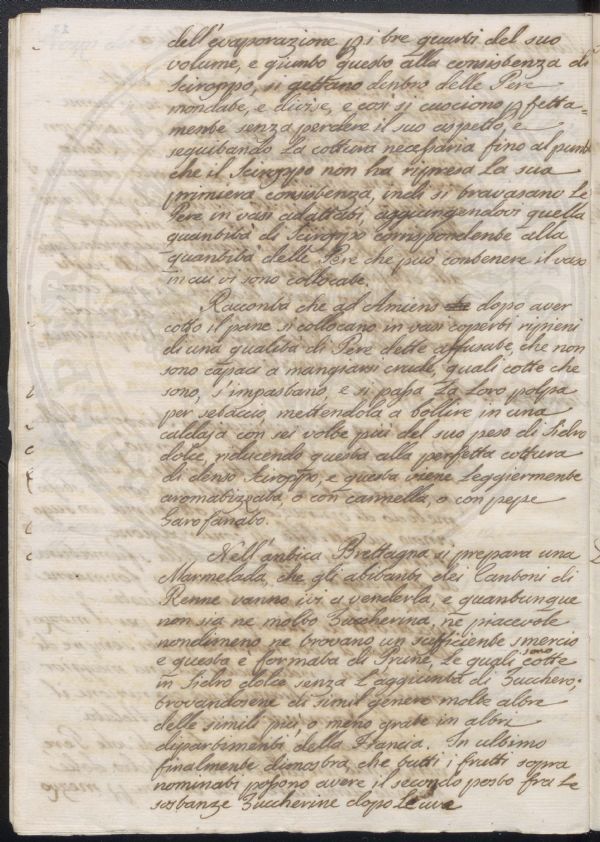 dell'evaporazione p i tre quarti del suo
volume, e giunto questo alla consistenza di
Sciroppo, si gettano dentro delle Pere
mondate, e divise, e così si cuociono p fetta=
mente senza perdere il suo aspetto, e
seguitando la cottura necessaria fino al punto
che il Sciroppo non ha ripresa la sua
primiera consistenza, indi si travasano le
Pere in vasi adattati, aggiungendovi quella
quantità di Sciroppo corrispondente alla
quantità delle Pere che può contenere il vaso
in cui vi sono collocate.
Racconta che ad Amiens dopo aver
cotto il pane si collocano in vasi coperti ripieni
di una qualità di Pere dette affusate, che non
sono capaci a mangiarsi crude, quali cotte che
sono, s'impastano, e si passa la loro polpa
per setaccio mettendola a bollire in una
caldaja con sei volte più del suo peso di Sidro
dolce, riducendo questa alla perfetta cottura
di denso Sciroppo, e questa viene leggiermente
aromatizzata, o con cannella, o con pepe
Garofanato.
Nell'antica Brettagna si prepara una
Marmelada, che gli abitanti dei Cantoni di
Renne vanno ivi a venderla, e quantunque
non sia ne molto Zuccherina, ne piacevole
nondimeno ne trovano un sufficiente smercio
e questa e formata di Prune, le quali sono cotte
in Sidro dolce senza l'aggiunta di Zucchero;
trovandosene di simil genere molte altre
delle simili più, o meno grate in altri
dipartimenti della Francia. In ultimo
finalmente dimostra che tutti i frutti sopra
nominati possono avere il secondo posto fra le
sostanze Zuccherine dopo le uve